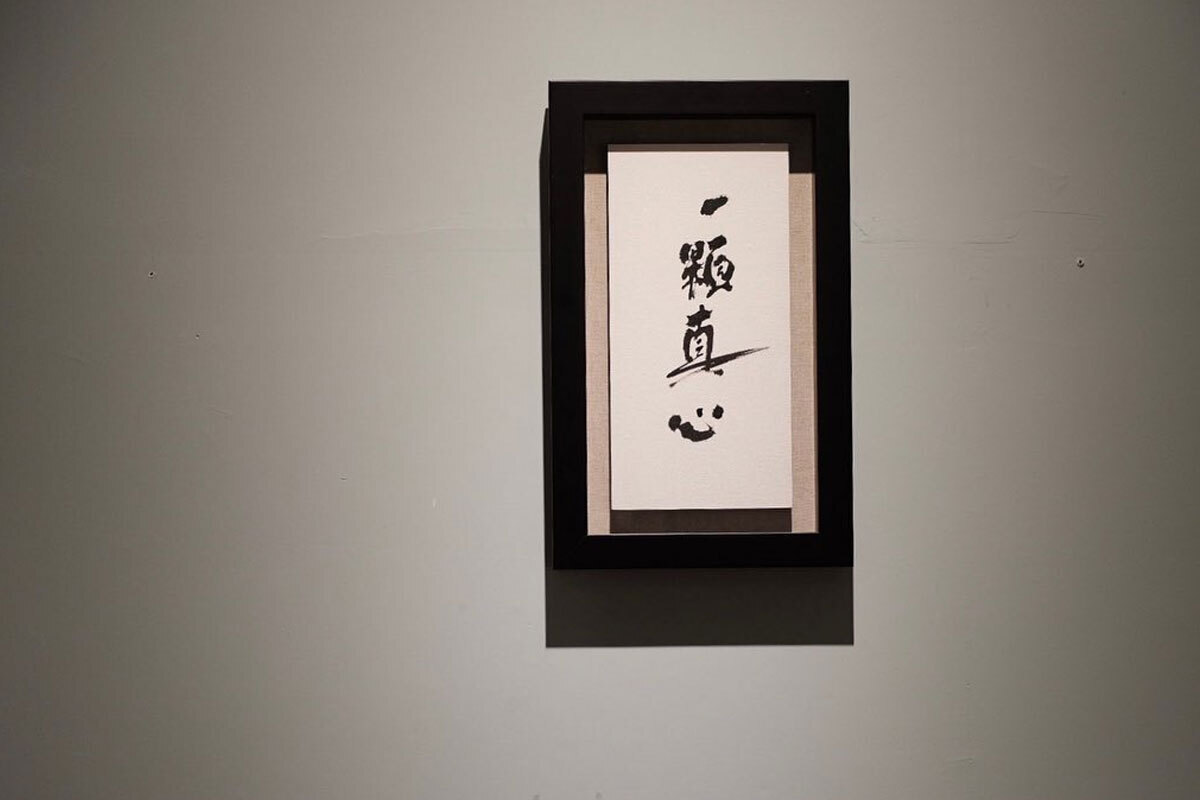 一顆真心